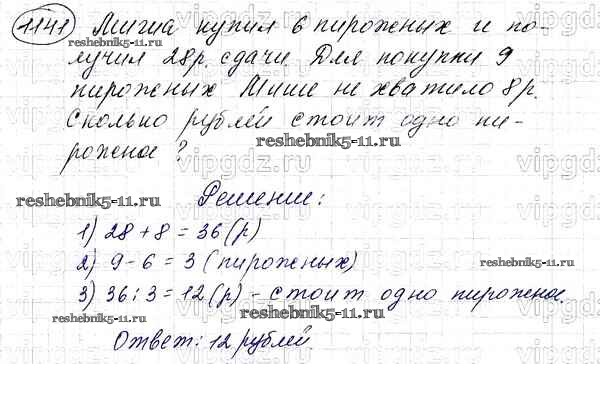 1141 Миша купил 6 пирожных и по-
лучил 28 р. сдачи. Для покупки 9
пирожных Мише не хватило 8 р.
Сколько рублей стоит одно пи-
рожное?
Решение:
1) 28 + 8 = 36 (р)
2) 9 - 6 = 3 (пирожных)
3) 36 : 3 = 12 (р) - стоит одно пирожное.
Ответ: 12 рублей.
reshebnik5-11.ru
reshebnik5-11.ru
reshebnik5-11.ru
reshebnik5-11.ru
reshebnik5-11.ru
reshebnik5-11.ru
vipgdz.ru